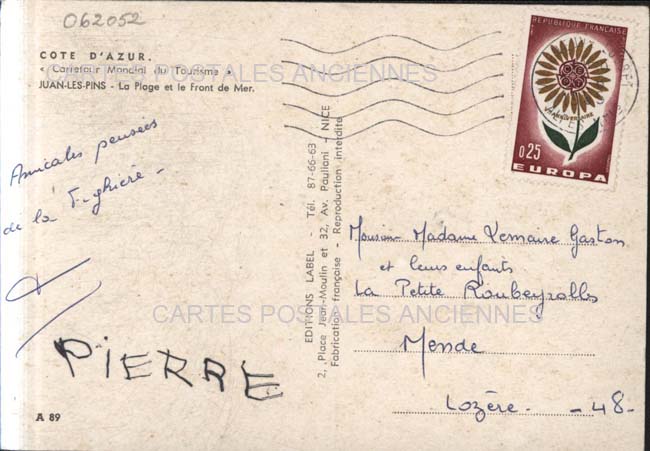 062052
COTE D'AZUR.
« Carrefour Mondial du Tourisme »
JUAN-LES-PINS - La Plage et le Front de Mer.
CARTES POSTALES ANCIENNES
Amicales pensées
de la
PIERRE
A 89
EDITIONS LABEL - Tél. 87-66-63
2, Place Jean-Moulin et 32, Av. Pauliani - NICE
Fabrication française - Reproduction interdite
REPUBLIQUE FRANÇAISE
ANNIVERSAIRE
0,25
EUROPA
Monsieur Madame Lemaire Gaston
et leurs enfants
La Petite Roubeyrolle
CARTES POSTALES ANCIENNES
Mende
Lozère - 48 -